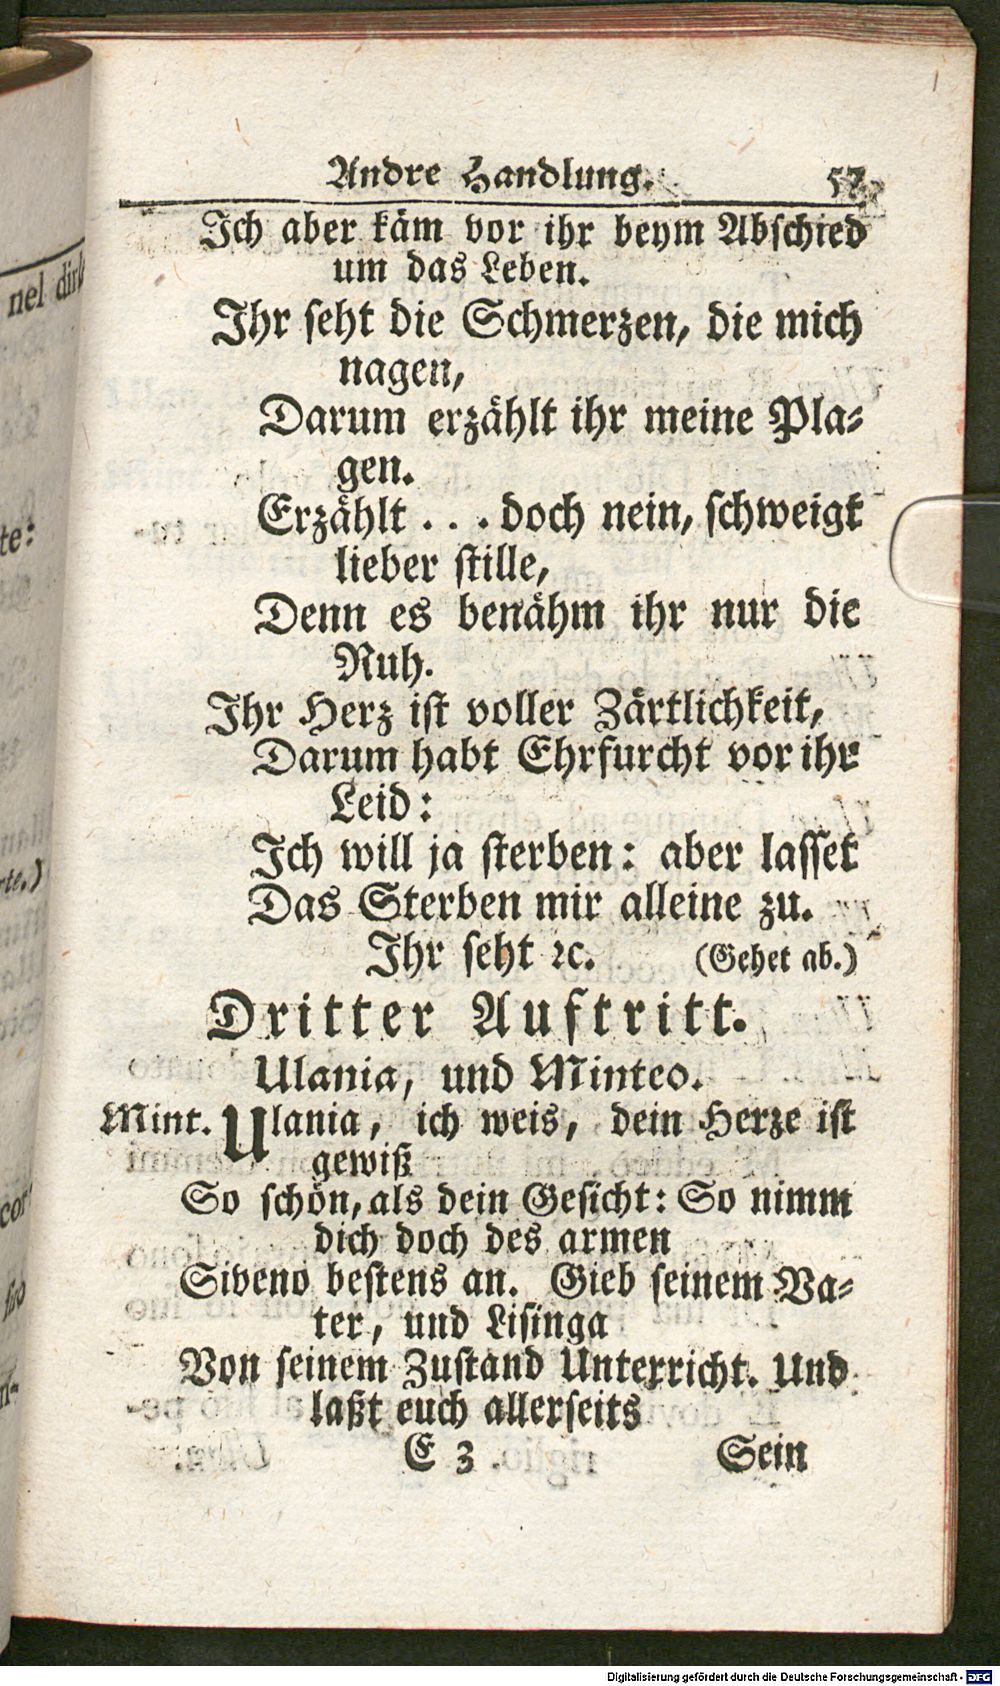 nel
te:
rte.)
Andre Handlung. 57
Ich aber käm vor ihr beym Abschied
um das Leben.
Ihr seht die Schmerzen, die mich
nagen,
Darum erzählt ihr meine Pla-
gen.
Erzählt . . . doch nein, schweigt
lieber stille,
Denn es benähm ihr nur die
Ruh.
Ihr Herz ist voller Zärtlichkeit,
Darum habt Ehrfurcht vor ihr
Leid:
Ich will ja sterben: aber lasset
Das Sterben mir alleine zu.
Ihr seht ꝛc. (Gehet ab.)
Dritter Auftritt.
Ulania, und Minteo.
Mint. Ulania, ich weis, dein Herze ist
gewiß
So schön, als dein Gesicht: So nimm
dich doch des armen
Siveno bestens an. Gieb seinem Va-
ter, und Lisinga
Von seinem Zustand Unterricht. Und
laßt euch allerseits
E 3 Sein
Digitalisierung gefördert durch die Deutsche Forschungsgemeinschaft - DFG